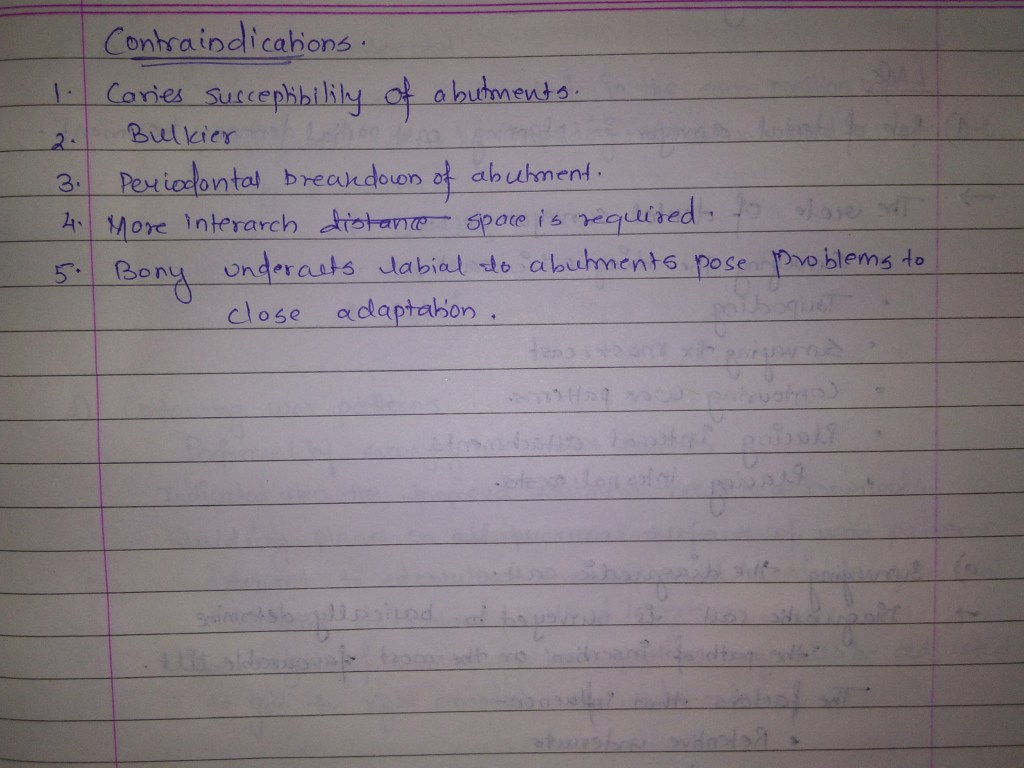 Contraindications.
1. Caries susceptibility of abutments.
2. Bulkier
3. Periodontal breakdown of abutment.
4. More interarch distance space is required.
5. Bony undercuts labial to abutments pose problems to
close adaptation.